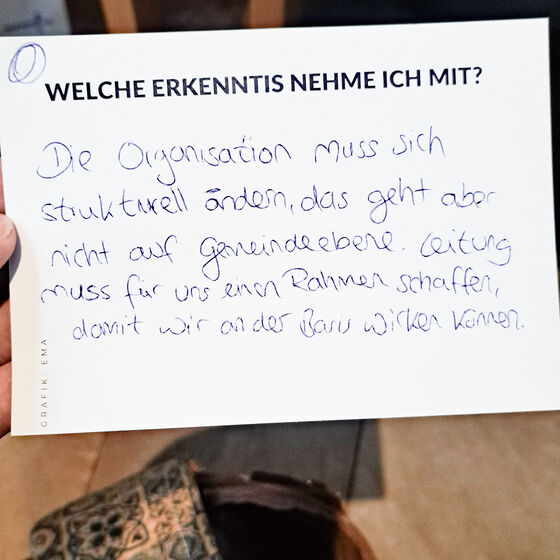 WELCHE ERKENNTIS NEHME ICH MIT?
Die Organisation muss sich
strukturell ändern, das geht aber
nicht auf Gemeindeebene. Leitung
muss für uns einen Rahmen schaffen,
damit wir an der Basis wirken können.
GRAFIK: EMA